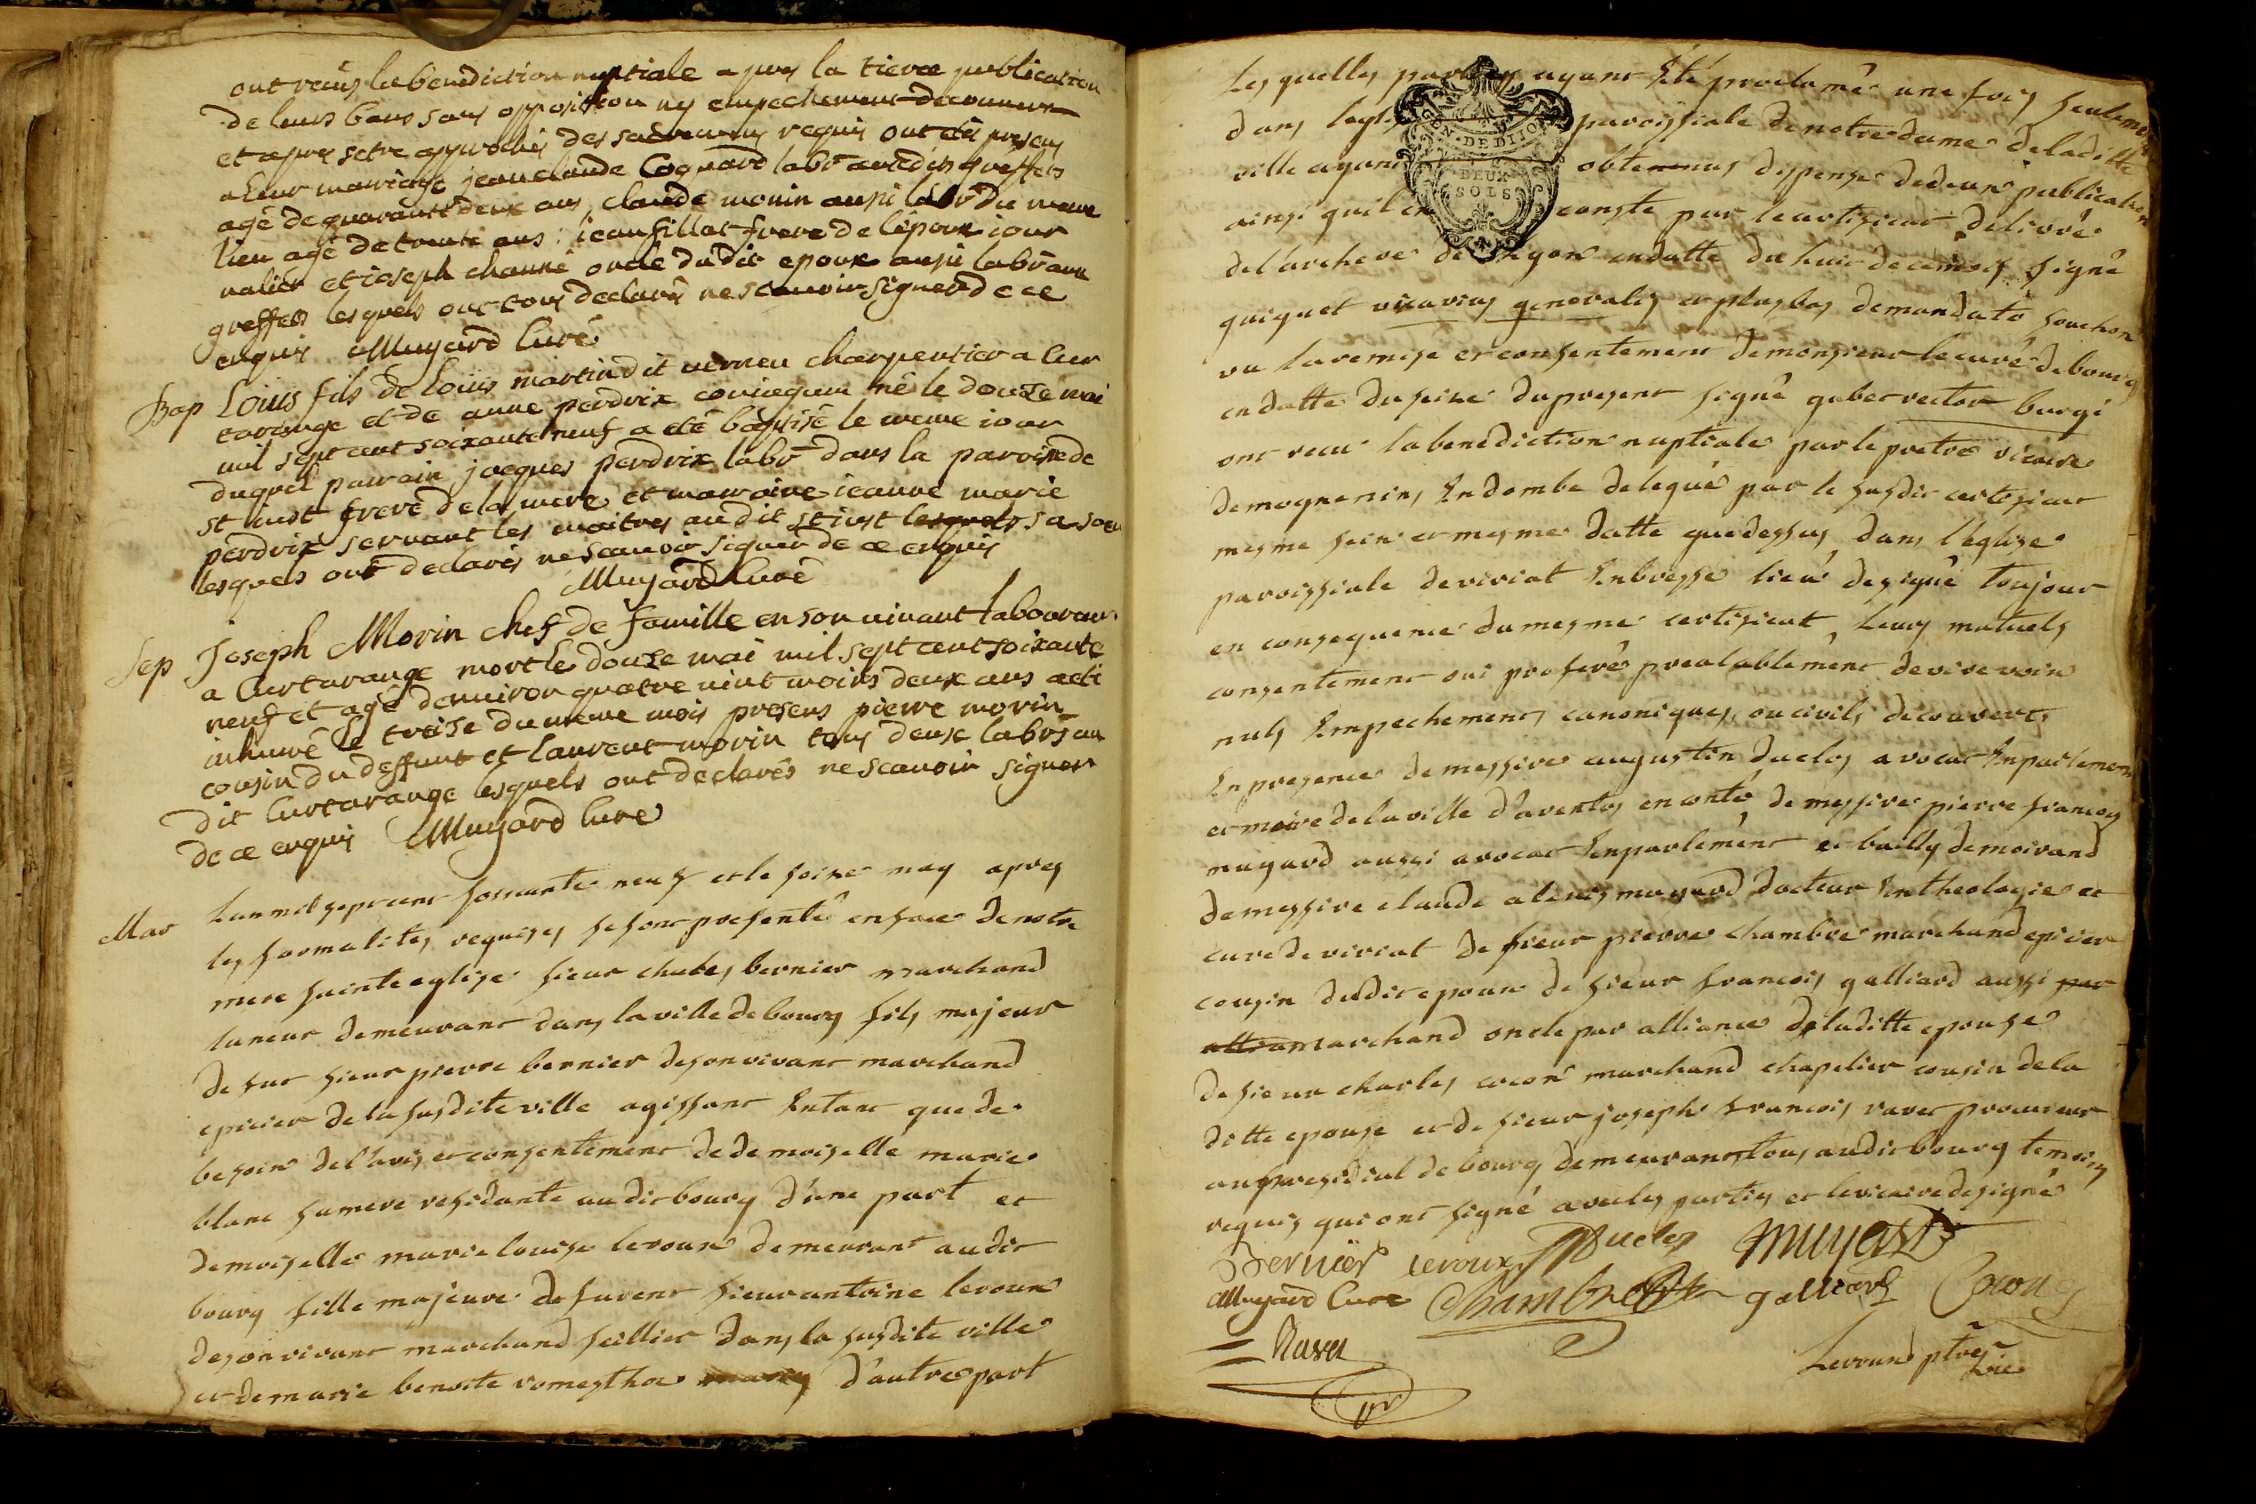 ont reçus la bénédiction nuptiale apres la tierce publication
de leurs bans sans opposition ny empechement decouvert
et apres setre approchés des sacremens requis ont étés presens
a leur mariage jean claude Coquard labr audit greffets
agé de quarante deux ans, claude monin aussi labr du meme
lieu agé de trente ans : jean fillot frere de l'époux jour
nalier et joseph channé oncle dudit epoux aussi labr aux
greffets lesquels ont tous declarés ne scavoir signer de ce
enquis Muyard Curé
Bap Loüis fils de Loüis martin dit verneu charpentier a Cur
tarange et de anne perdrix conjoguum né le douze mai
mil sept cent soixante neuf a été baptisé le meme jour
duquel parrain jacques perdrix labr dans la paroisse de
st just frere de la mere et marraine jeanne marie
perdrix servant les maitres audit st just lesquels sa soeur
lesquels ont declarés ne scauoir signer de ce enquis
Muyard Curé
Sep Joseph Morin chef de famille en son vivant laboureur
a Curtarange mort le douze mai mil sept cent soixante
neuf et agé denuiron quatre vint moins deux ans a eté
inhumé le treise du meme mois presens pierre morin
cousin du deffunt et laurent morin tous deux labrs au
dit Curtarange lesquels ont declarés ne scavoir signer
de ce enquis Muyard Curé
Mar Lan mil sept cent soissante neuf et le seize may apres
les formalites requises se sont presenté en face de notre
mere sainte eglise sieur bernier marchand
taneur demeurant dans la ville de bourg fils majeur
de fut sieur pierre bernier de son vivant marchand
epicier de la susdite ville agissant Entant que de
besoin de l'avis et consentement de demoiselle marie
blanc sa mere residante audit bourg d'une part et
demoiselle marie louise leroux demeurant audit
bourg fille majeure defurent sieur antoine leroux
de son vivant marchand sellier dans la susdite ville
et de marie benoite d'autre part
Les quelles parties ayant Eté proclamé une fois seulement
dans legli paroissiale de notre dame de la ditte
ville ayant obtenus dispense de deux publication
ainsi quil en conste par le certificat delivré
de l'archeve de lyon en datte du huit de ce mois signé
guiguet vicarius generalis et plus bas de mandato souchon
vu la remise et consentement de monsieur le curé de bourg
en datte du seize du present signé rector burgi
ont recu la benediction nuptiale par le pretre vicaire
de mogneneins En dombe delegué par le susdit certificat
mesme sein et mesme datte que dessus dans l'eglise
paroissiale de viriat En bresse lieu designé toujour
en consequence du mesme certificat leurs mutuels
consentement oui proferé prealablement de vive voix
nuls Empechements canoniques, ou civils decouverts
En presence de messire augustin duclos avocat En parlement
et maire de la ville d'aventos en conté de messire pierre francois
muyard aussi avocat Enparlement et bailly de moirand
de messire claude alexis muyard docteur En theologie et
cure de viriat de sieur pierre chambre marchand epicier
cousin dudit epoux de sieur francois galliard aussi par
allian marchand oncle par alliance de laditte epouse
de sieur charles marchand chapelier cousin de la
ditte epouse et de sieur joseph francois ravet procureur
au presidial de bourg demeurant tous audit bourg temoins
requis qui ont signé avec les parties et le vicaire designé
Bernier leroux Duclos Muyard
Muyard Curé Chambre galliard
Ravet
Leroux ptre
vic
GEN · DE DIJON
DEUX
SOLS